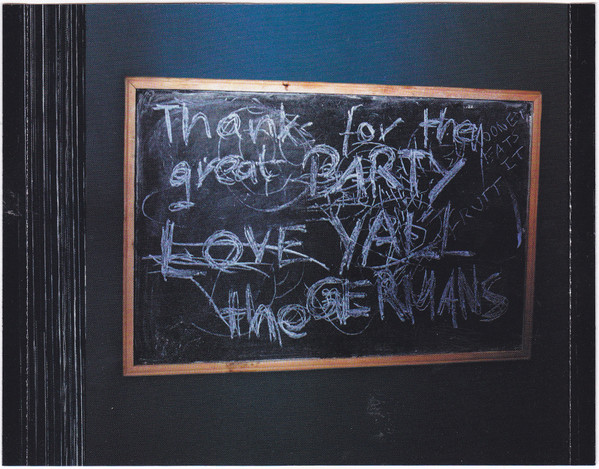 Thank for the
great PARTY
LOVE YA'LL
the GERMANS
EATS
IT
FRUIT